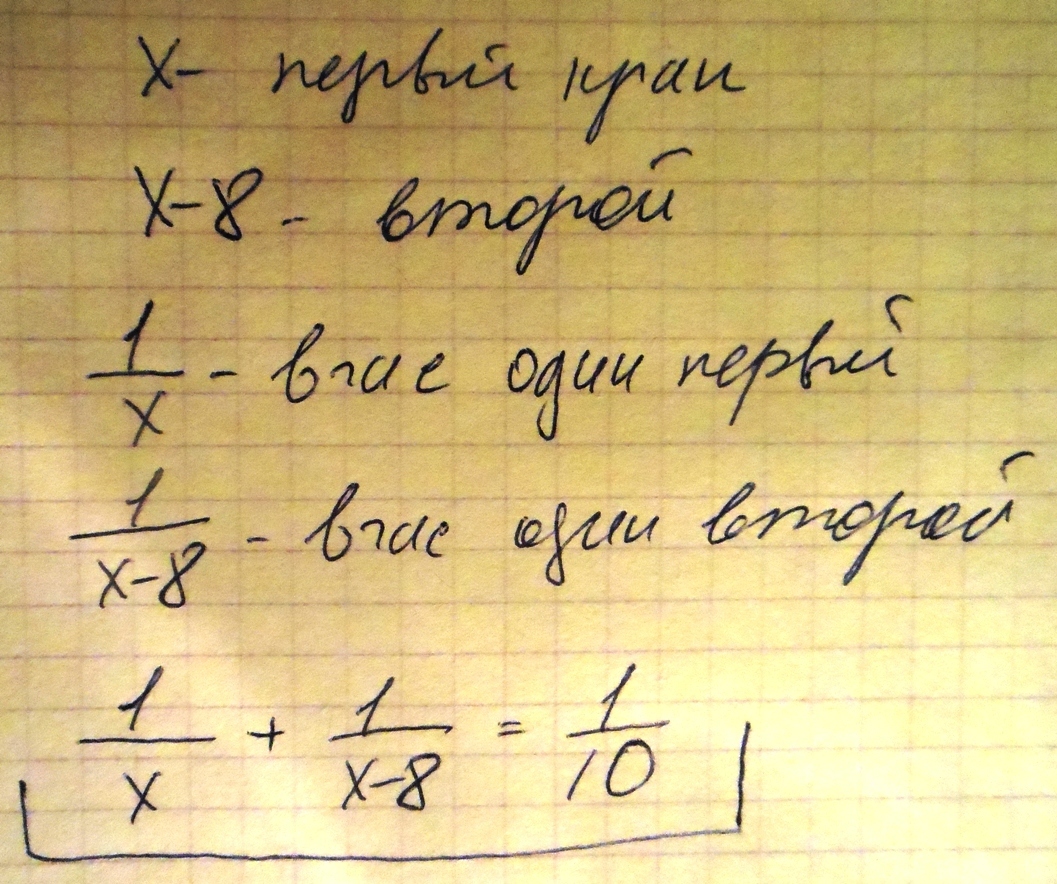 x - первый кран
x-8 - второй
1/x - в час один первый
1/(x-8) - в час один второй
1/x + 1/(x-8) = 1/10